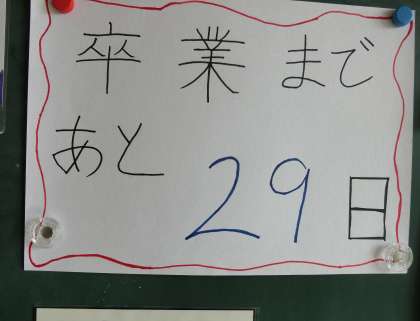 卒業まで
あと 29日